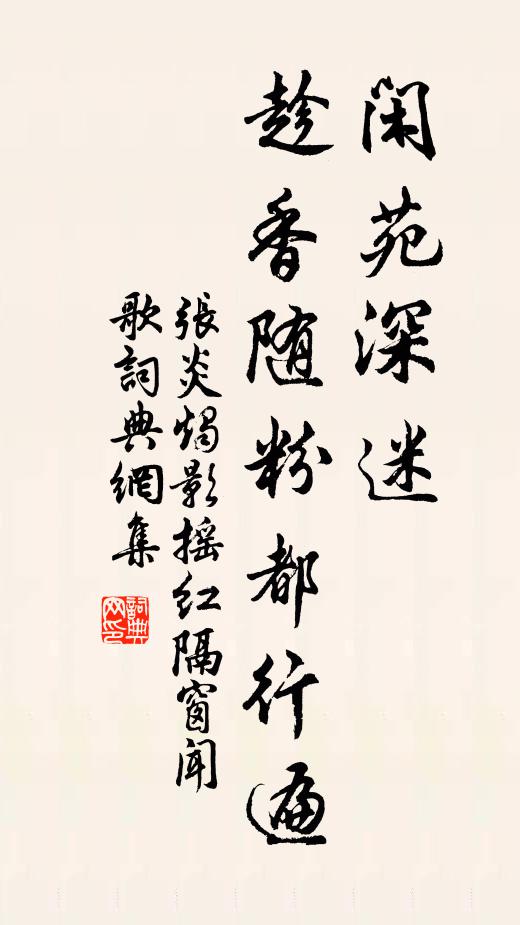 閑苑深迷
趁香随粉都行遍
張炎燭影摇紅隔窗聞
歌詞典網集
詞典网印